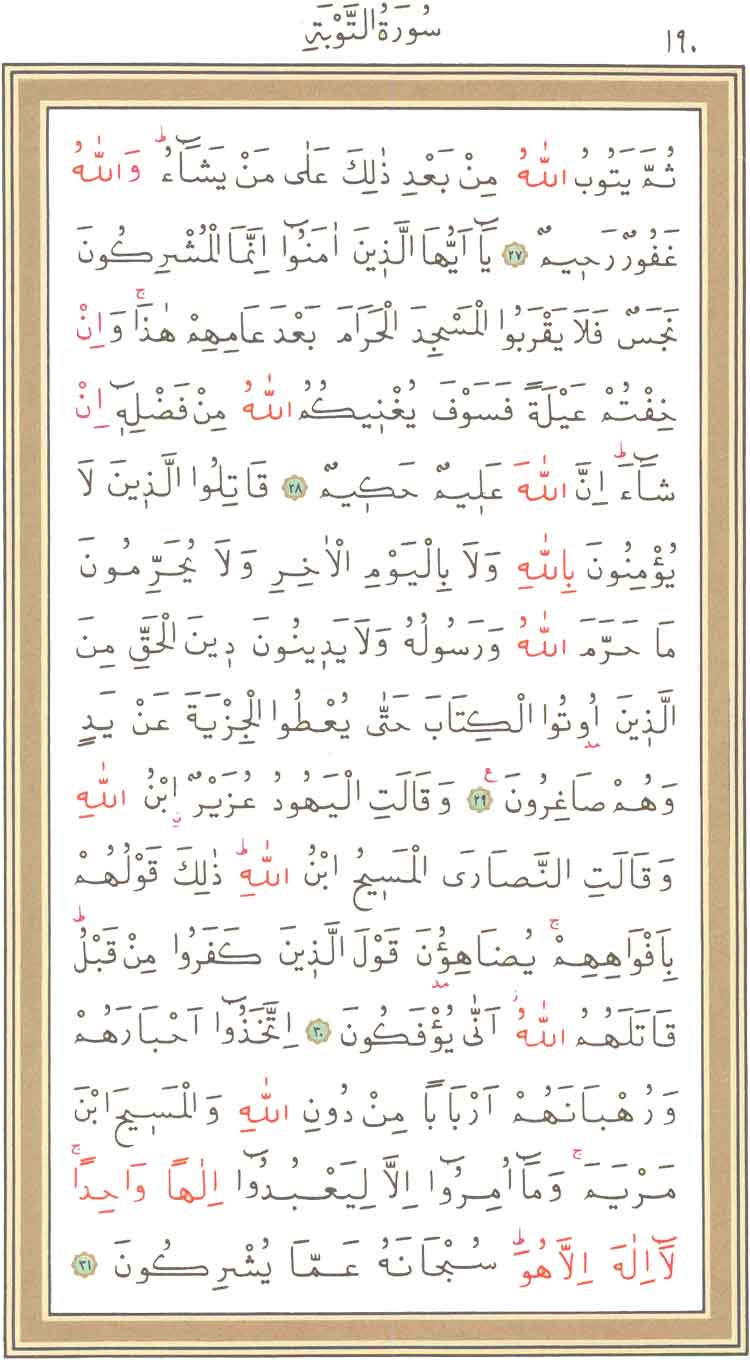 سُورَةُ التَّوْبَةِ ١٩٠
ثُمَّ يَتُوبُ اللّٰهُ مِنْ بَعْدِ ذٰلِكَ عَلٰى مَنْ يَشَٓاءُۜ وَاللّٰهُ
غَفُورٌ رَحٖيمٌ ﴿٢٧﴾ يَٓا اَيُّهَا الَّذٖينَ اٰمَنُٓوا اِنَّمَا الْمُشْرِكُونَ
نَجَسٌ فَلَا يَقْرَبُوا الْمَسْجِدَ الْحَرَامَ بَعْدَ عَامِهِمْ هٰذَاۚ وَاِنْ
خِفْتُمْ عَيْلَةً فَسَوْفَ يُغْنٖيكُمُ اللّٰهُ مِنْ فَضْلِهٖٓ اِنْ
شَٓاءَۜ اِنَّ اللّٰهَ عَلٖيمٌ حَكٖيمٌ ﴿٢٨﴾ قَاتِلُوا الَّذٖينَ لَا
يُؤْمِنُونَ بِاللّٰهِ وَلَا بِالْيَوْمِ الْاٰخِرِ وَلَا يُحَرِّمُونَ
مَا حَرَّمَ اللّٰهُ وَرَسُولُهُ وَلَا يَدٖينُونَ دٖينَ الْحَقِّ مِنَ
الَّذٖينَ اُو۫تُوا الْكِتَابَ حَتّٰى يُعْطُوا الْجِزْيَةَ عَنْ يَدٍ
وَهُمْ صَاغِرُونَ ﴿٢٩﴾ وَقَالَتِ الْيَهُودُ عُزَيْرٌ ابْنُ اللّٰهِ
وَقَالَتِ النَّصَارَى الْمَسٖيحُ ابْنُ اللّٰهِۜ ذٰلِكَ قَوْلُهُمْ
بِاَفْوَاهِهِمْۚ يُضَاهِؤُ۫نَ قَوْلَ الَّذٖينَ كَفَرُوا مِنْ قَبْلُۜ
قَاتَلَهُمُ اللّٰهُۘ اَنّٰى يُؤْفَكُونَ ﴿٣٠﴾ اِتَّخَذُٓوا اَحْبَارَهُمْ
وَرُهْبَانَهُمْ اَرْبَابًا مِنْ دُونِ اللّٰهِ وَالْمَسٖيحَ ابْنَ
مَرْيَمَۚ وَمَٓا اُمِرُٓوا اِلَّا لِيَعْبُدُٓوا اِلٰهًا وَاحِدًاۚ
لَٓا اِلٰهَ اِلَّا هُوَۜ سُبْحَانَهُ عَمَّا يُشْرِكُونَ ﴿٣١﴾